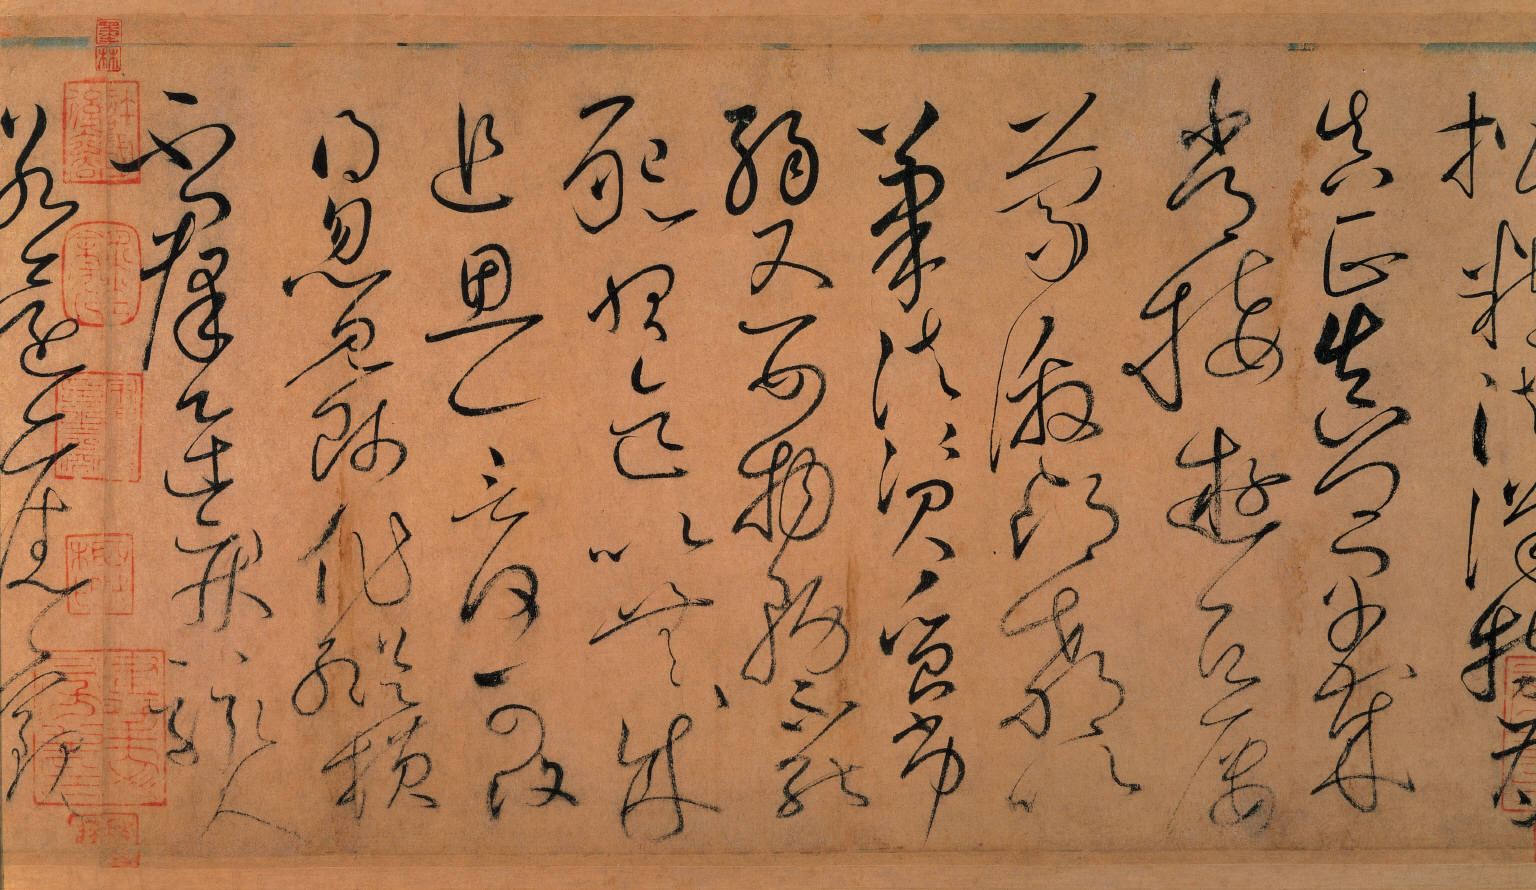 楷精法詳特為
真正真卿早歲
常接遊居屢
蒙激昂教以
筆法資質劣
弱又嬰物務不能
懇習迄以無成
追思一言何可復
得忽見師作縱橫
不羣迅疾駭人
若還舊觀